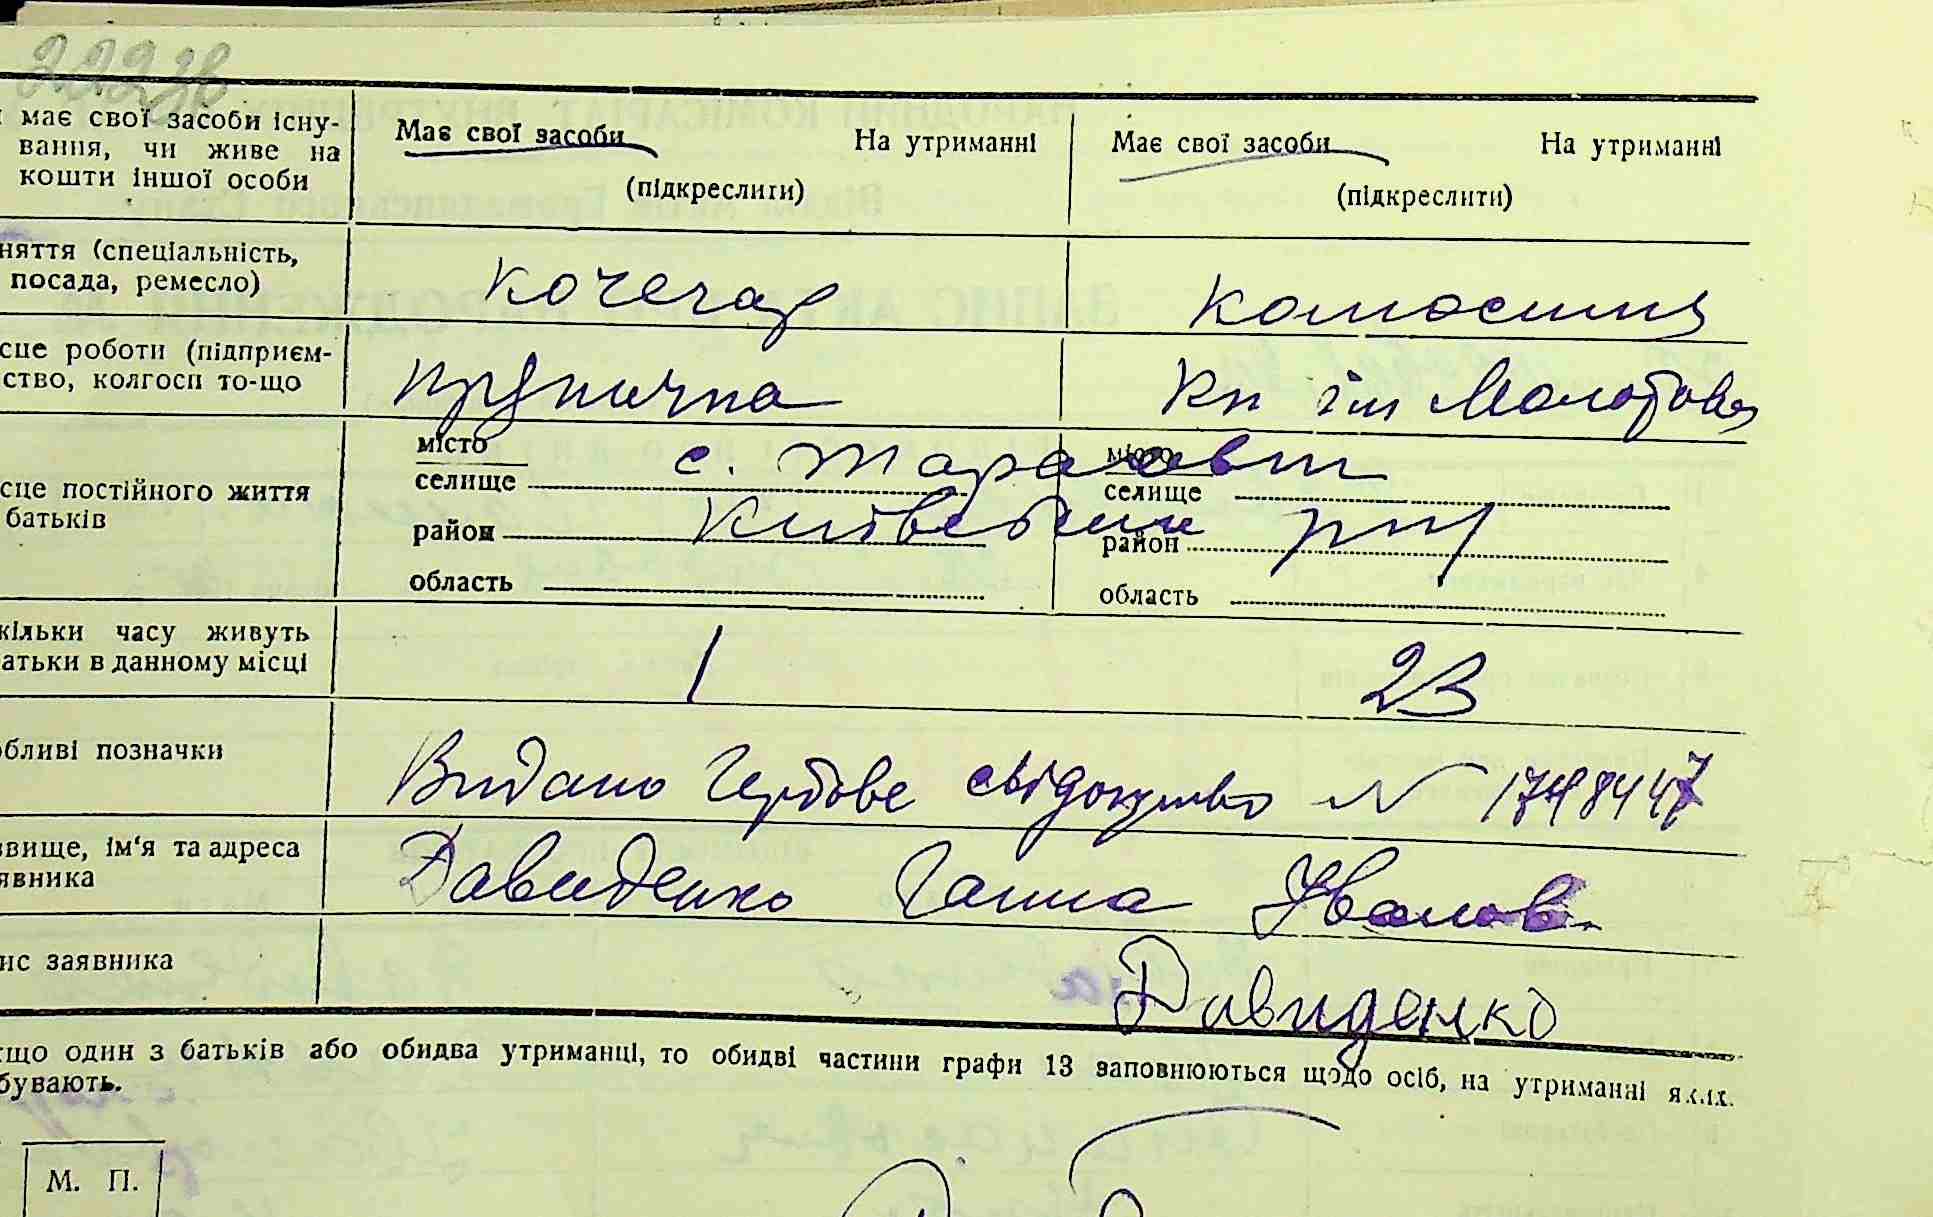 має свої засоби існу-
вання, чи живе на
кошти іншої особи
Має свої засоби На утриманні
(підкреслити)
Має свої засоби На утриманні
(підкреслити)
няття (спеціальність,
посада, ремесло)
кочегар
сце роботи (підприєм-
ство, колгосп то-що
Кп ім Молотова
сце постійного життя
батьків
місто
селище
район
область
місто
селище
район
область
с.
кільки часу живуть
атьки в данному місці
1 23
обливі позначки
Видано Гербове свідоцтво N
звище, ім‘я та адреса
явника
Давиденко Ганна Иванов.
ис заявника
Давиденко
кщо один з батьків або обидва утриманці, то обидві частини графи 13 заповнюються щодо осіб, на утриманні яких
бувають.
М. П.